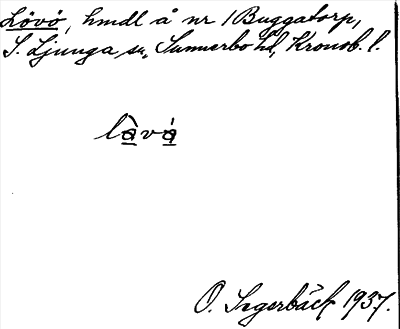 Lövö, hmdl å nr 1 Buggatorp,
S. Ljunga sn, Sunnerbo hd, Kronob. l.
làvá
O. Segerbäck 1937.